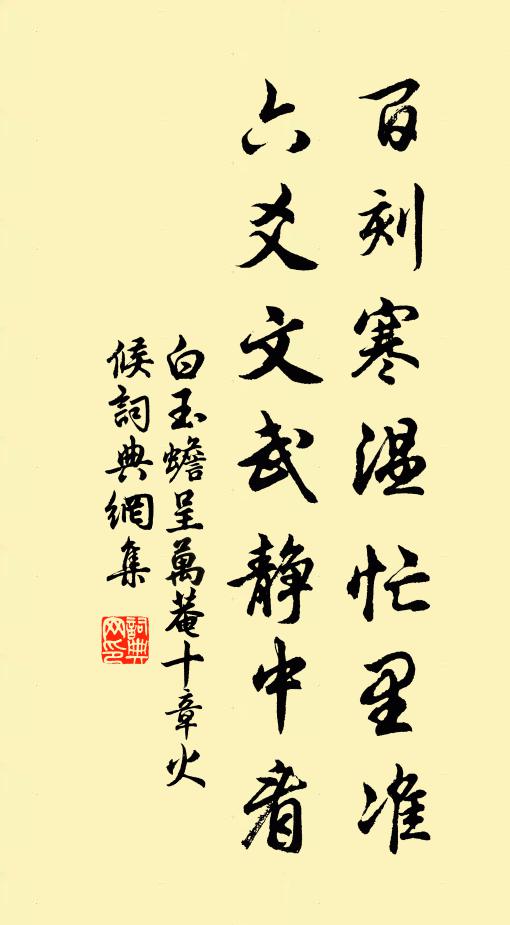 百刻寒温忙里准
六爻文武静中看
白玉蟾呈萬菴十章火
候詞典網集
詞典
网印